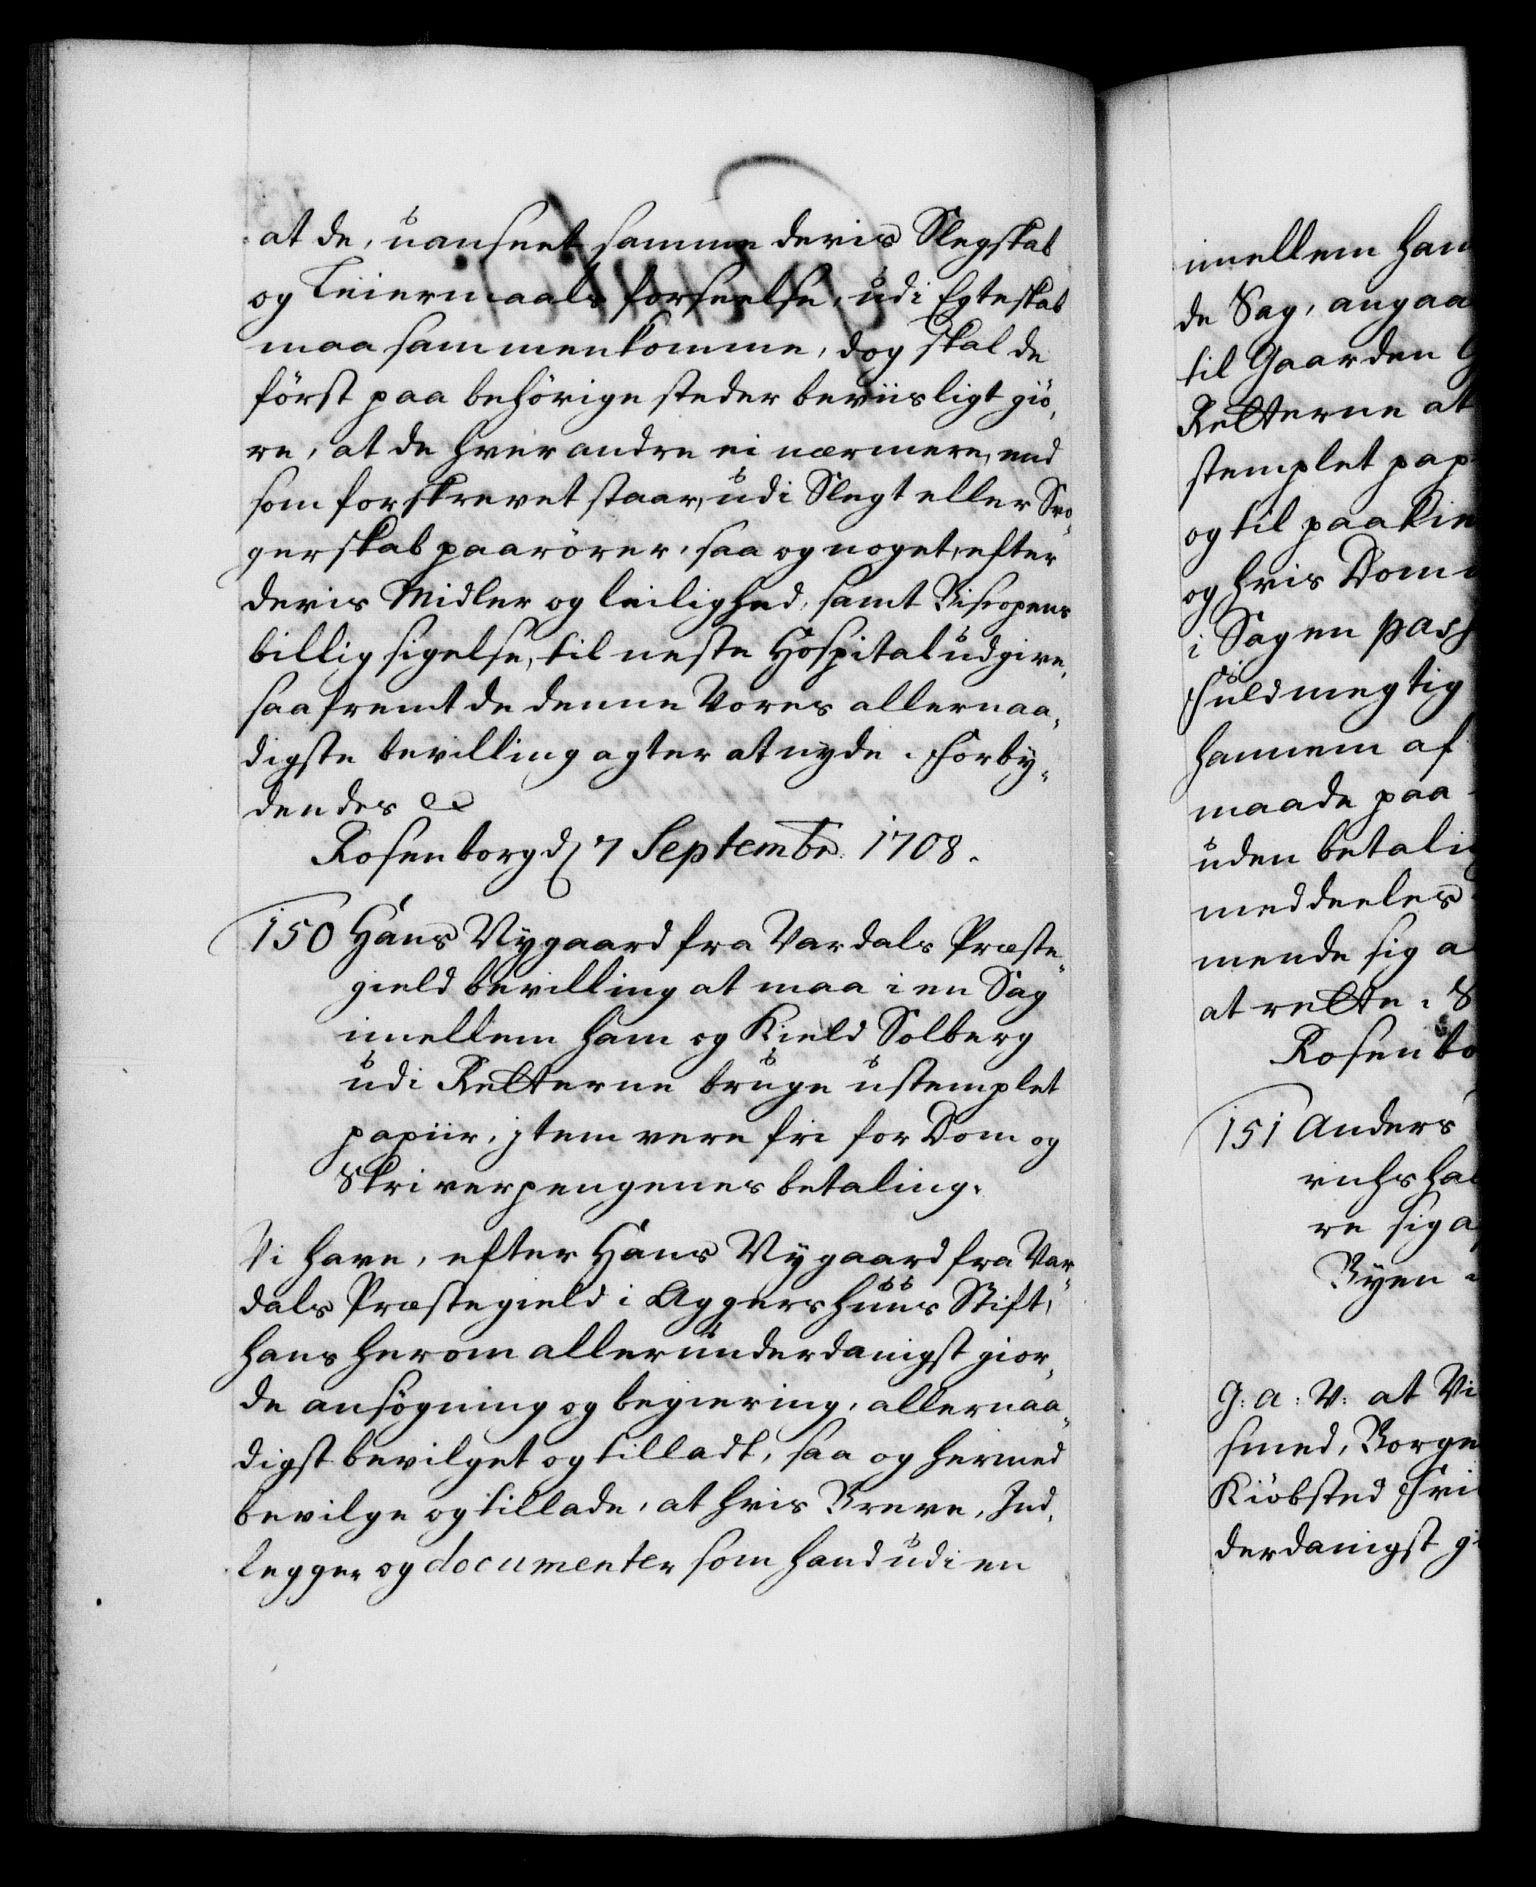 at de, uanseet samme deris Slegskab
og Leiermaals forseelse, udi Egteskab
maa sammenkomme, dog skal de
först paa behörige steder beviisligt giö,
re, at de hver andre ei nærmere, end
som forskrevet staar, udi Slegt eller Svo,
gerskab paarörer, saa og noget, efter
deris Midler og leilighed, samt Biscopens
billig sigelse, til neste Hospital udgive,
saafremt de denne Vores allernaa,
digste bevilling agter at nyde. Forby,
dendes &c
Rosenborg d 7 Septembr. 1708.
150 Hans Nygaard fra Vardals Præste,
gield bevilling at maa i en Sag
imellem ham og Kield Solberg
udi Retterne bruge ustemplet
papiir, jtem vere fri for Dom og
Skriverpengenes betaling.
Vi have, efter Hans Nygaard fra Var,
dals Præstegield i Aggershuus Stift,
hans herom allerunderdanigst gior,
de ansögning og begiering, allernaa,
digst bevilget og tilladt, saa og hermed
bevilge og tillade, at hvis Breve, Ind,
legger og documenter som hand udi en
imellem ham
de Sag, angaa
til Gaarden
Retterne at
stemplet pap
og til paakie
og hvis Dom
i Sagen pass
Fuldmegtig
hannem af
maade paa
uden betali
meddeeles
mende sig a
at rette. S
Rosenbo
151 Anders
richshal
re sig a
Byen
G: A: V: at Vi
smed, Borge
Kiöbsted Fri
derdanigst gi